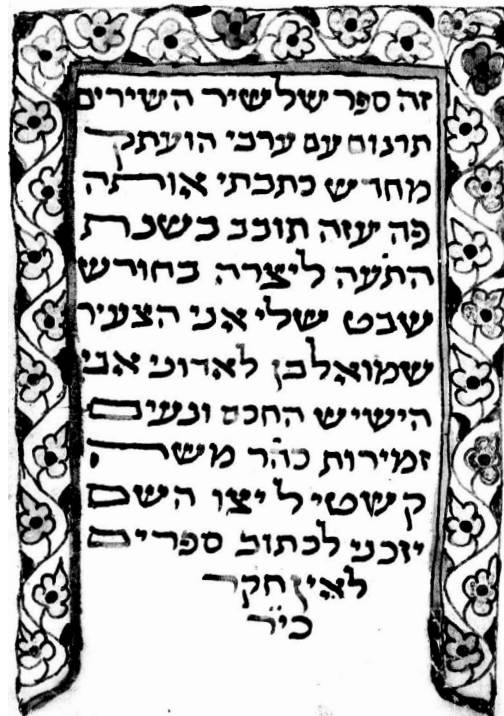 זה ספר של שיר השירים
תרגום עם ערבי הועתק
מחדש כתבתי אותה
פה יעזה תוכב בשנת
התעה ליצרה בחורש
שבט שלי אני הצעיר
שמואל בן לאדוני אבי
הישיש החכם ונעים
זמירות כהר משה
קשטי ליצו השם
יזכני לכתוב ספרים
לאין חקר
כיר